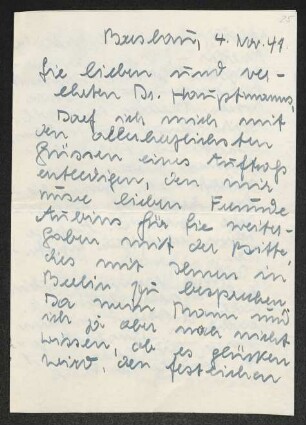 Breslau, 4. Nov. 41
Sie lieben und ver-
ehrten Dr. Hauptmanns,
Darf ich mich mit
den allerherzlichsten
Grüssen eines Auftrags
entledigen, den mir
unsre lieben Freunde
Aubins für Sie weiter-
gaben mit der Bitte,
dies mit Ihnen in
Berlin zu besprechen.
Da mein Mann und
ich ja aber noch nicht
wissen, ob es glücken
wird, den festlichen